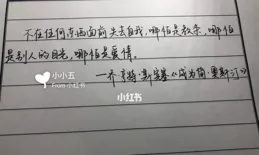 不在任何东西面前失去自我,哪怕是教条,哪怕
是别人的目光,哪怕是爱情。
——《成为简·奥斯汀》
小小五
From 小红书
小红书